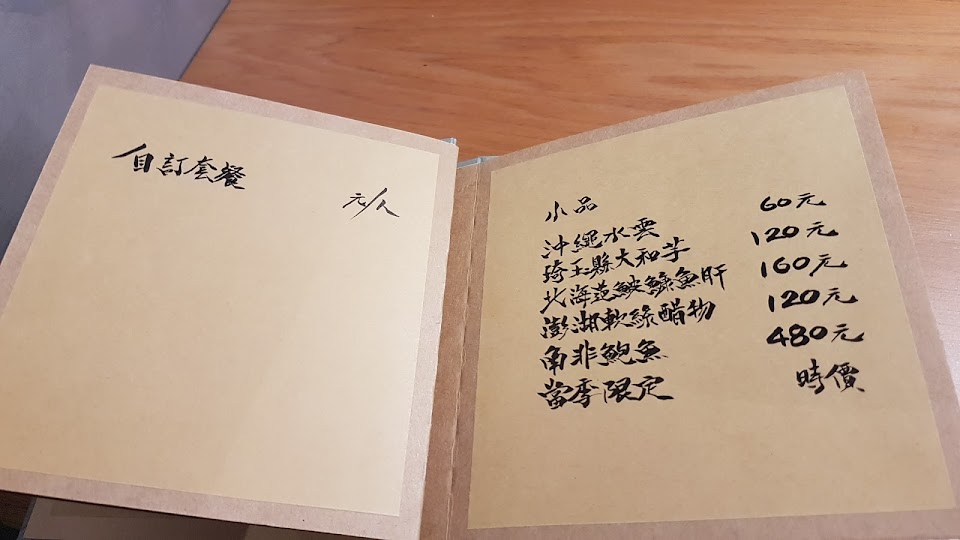 自訂套餐
元/人
小品
沖繩水雲 60元
埼玉縣大和芋 120元
北海道鮟鱇魚肝 160元
澎湖軟絲醋物 120元
南非鮑魚 480元
當季限定 時價